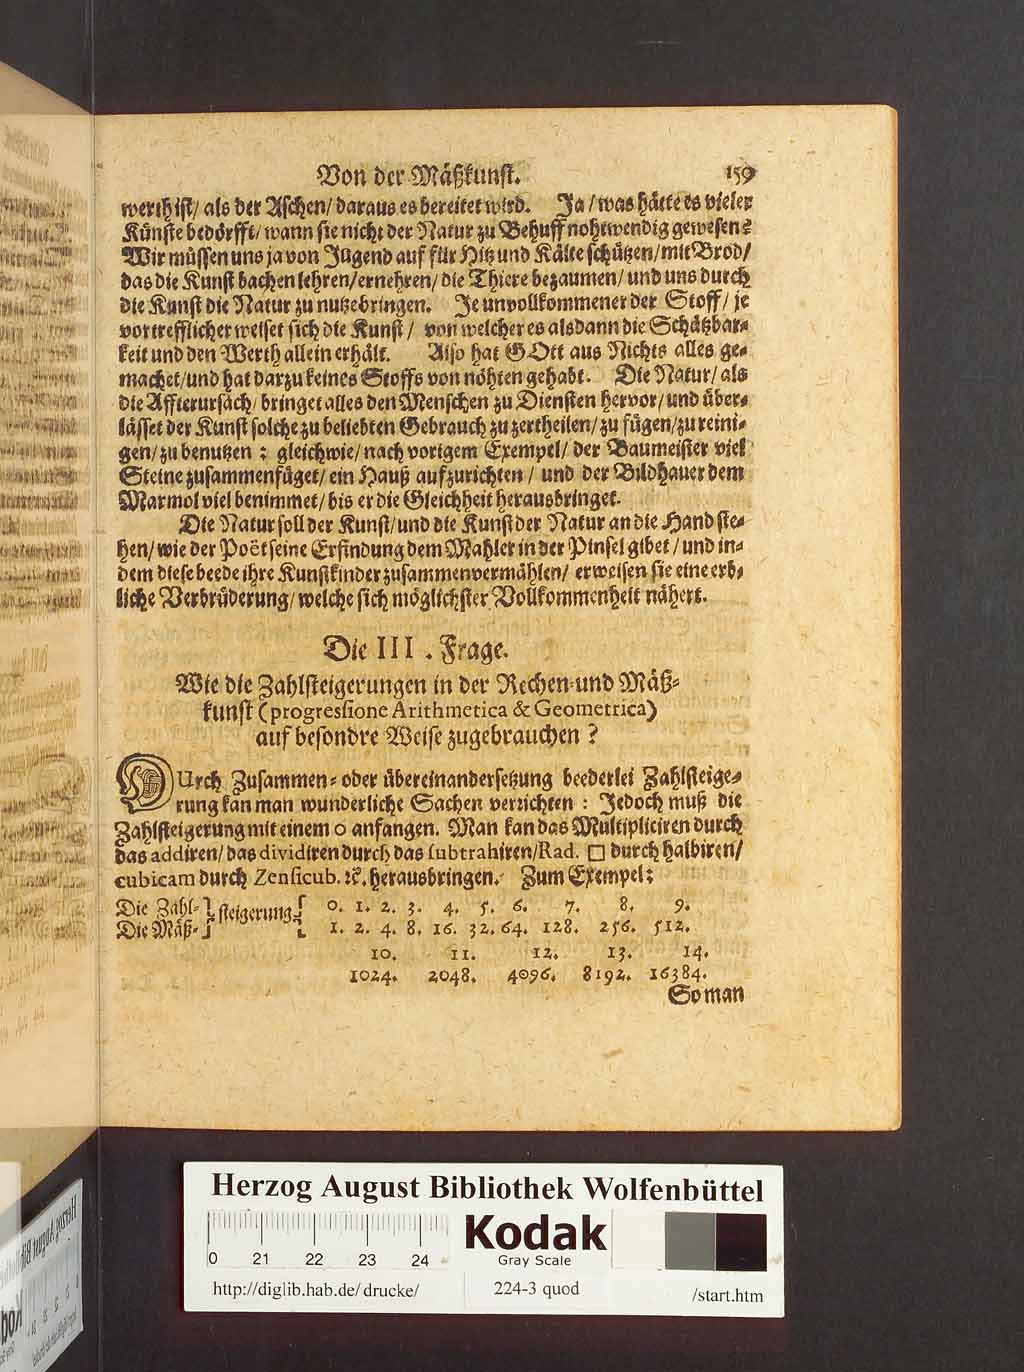 Von der Mäßkunst. 159
werth ist/ als der Aschen/ daraus es bereitet wird. Ja/ was hätte es vieler
Künste bedörfft/ wann sie nicht der Natur zu Behuff nohtwendig gewesen?
Wir müssen uns ja von Jugend auf für Hitz und Kälte schützen/ mit Brod/
das die Kunst bachen lehren/ ernehren/ die Thiere bezaumen/ und uns durch
die Kunst die Natur zu nutze bringen. Je unvollkommener der Stoff/ je
vortrefflicher weiset sich die Kunst/ von welcher es alsdann die Schätzbar-
keit und den Werth allein erhält. Also hat GOtt aus Nichts alles ge-
machet/ und hat darzu keines Stoffs von nöhten gehabt. Die Natur/ als
die Affterursach/ bringet alles den Menschen zu Diensten hervor/ und über-
lässet der Kunst solche zu beliebten Gebrauch zu zertheilen/ zu fügen/ zu reini-
gen/ zu benutzen: gleichwie/ nach vorigem Exempel/ der Baumeister viel
Steine zusammenfüget/ ein Hauß aufzurichten/ und der Bildhauer dem
Marmol viel benimmet/ bis er die Gleichheit herausbringet.
Die Natur soll der Kunst/ und die Kunst der Natur an die Hand ste-
hen/ wie der Poët seine Erfindung dem Mahler in der Pinsel gibet/ und in-
dem diese beede ihre Kunstkinder zusammen vermählen/ erweisen sie eine erb-
liche Verbrüderung/ welche sich möglichster Vollkommenheit nähert.
Die III. Frage.
Wie die Zahlsteigerungen in der Rechen- und Mäß-
kunst (progressione Arithmetica & Geometrica)
auf besondre Weise zugebrauchen?
DUrch Zusammen- oder übereinandersetzung beederlei Zahlsteige-
rung kan man wunderliche Sachen verrichten: Jedoch muß die
Zahlsteigerung mit einem 0 anfangen. Man kan das Multipliciren durch
das addiren/ das dividiren durch das subtrahiren/ Rad. □ durch halbiren/
cubicam durch Zensicub. ꝛc. herausbringen. Zum Exempel:
Die Zahl-} steigerung { 0. 1. 2. 3. 4. 5. 6. 7. 8. 9.
Die Mäß-} { 1. 2. 4. 8. 16. 32. 64. 128. 256. 512.
10. 11. 12. 13. 14.
1024. 2048. 4096. 8192. 16384.
So man
Herzog August Bibliothek Wolfenbüttel
0 21 22 23 24
Kodak
Gray Scale
http://diglib.hab.de/drucke/ 224-3 quod /start.htm